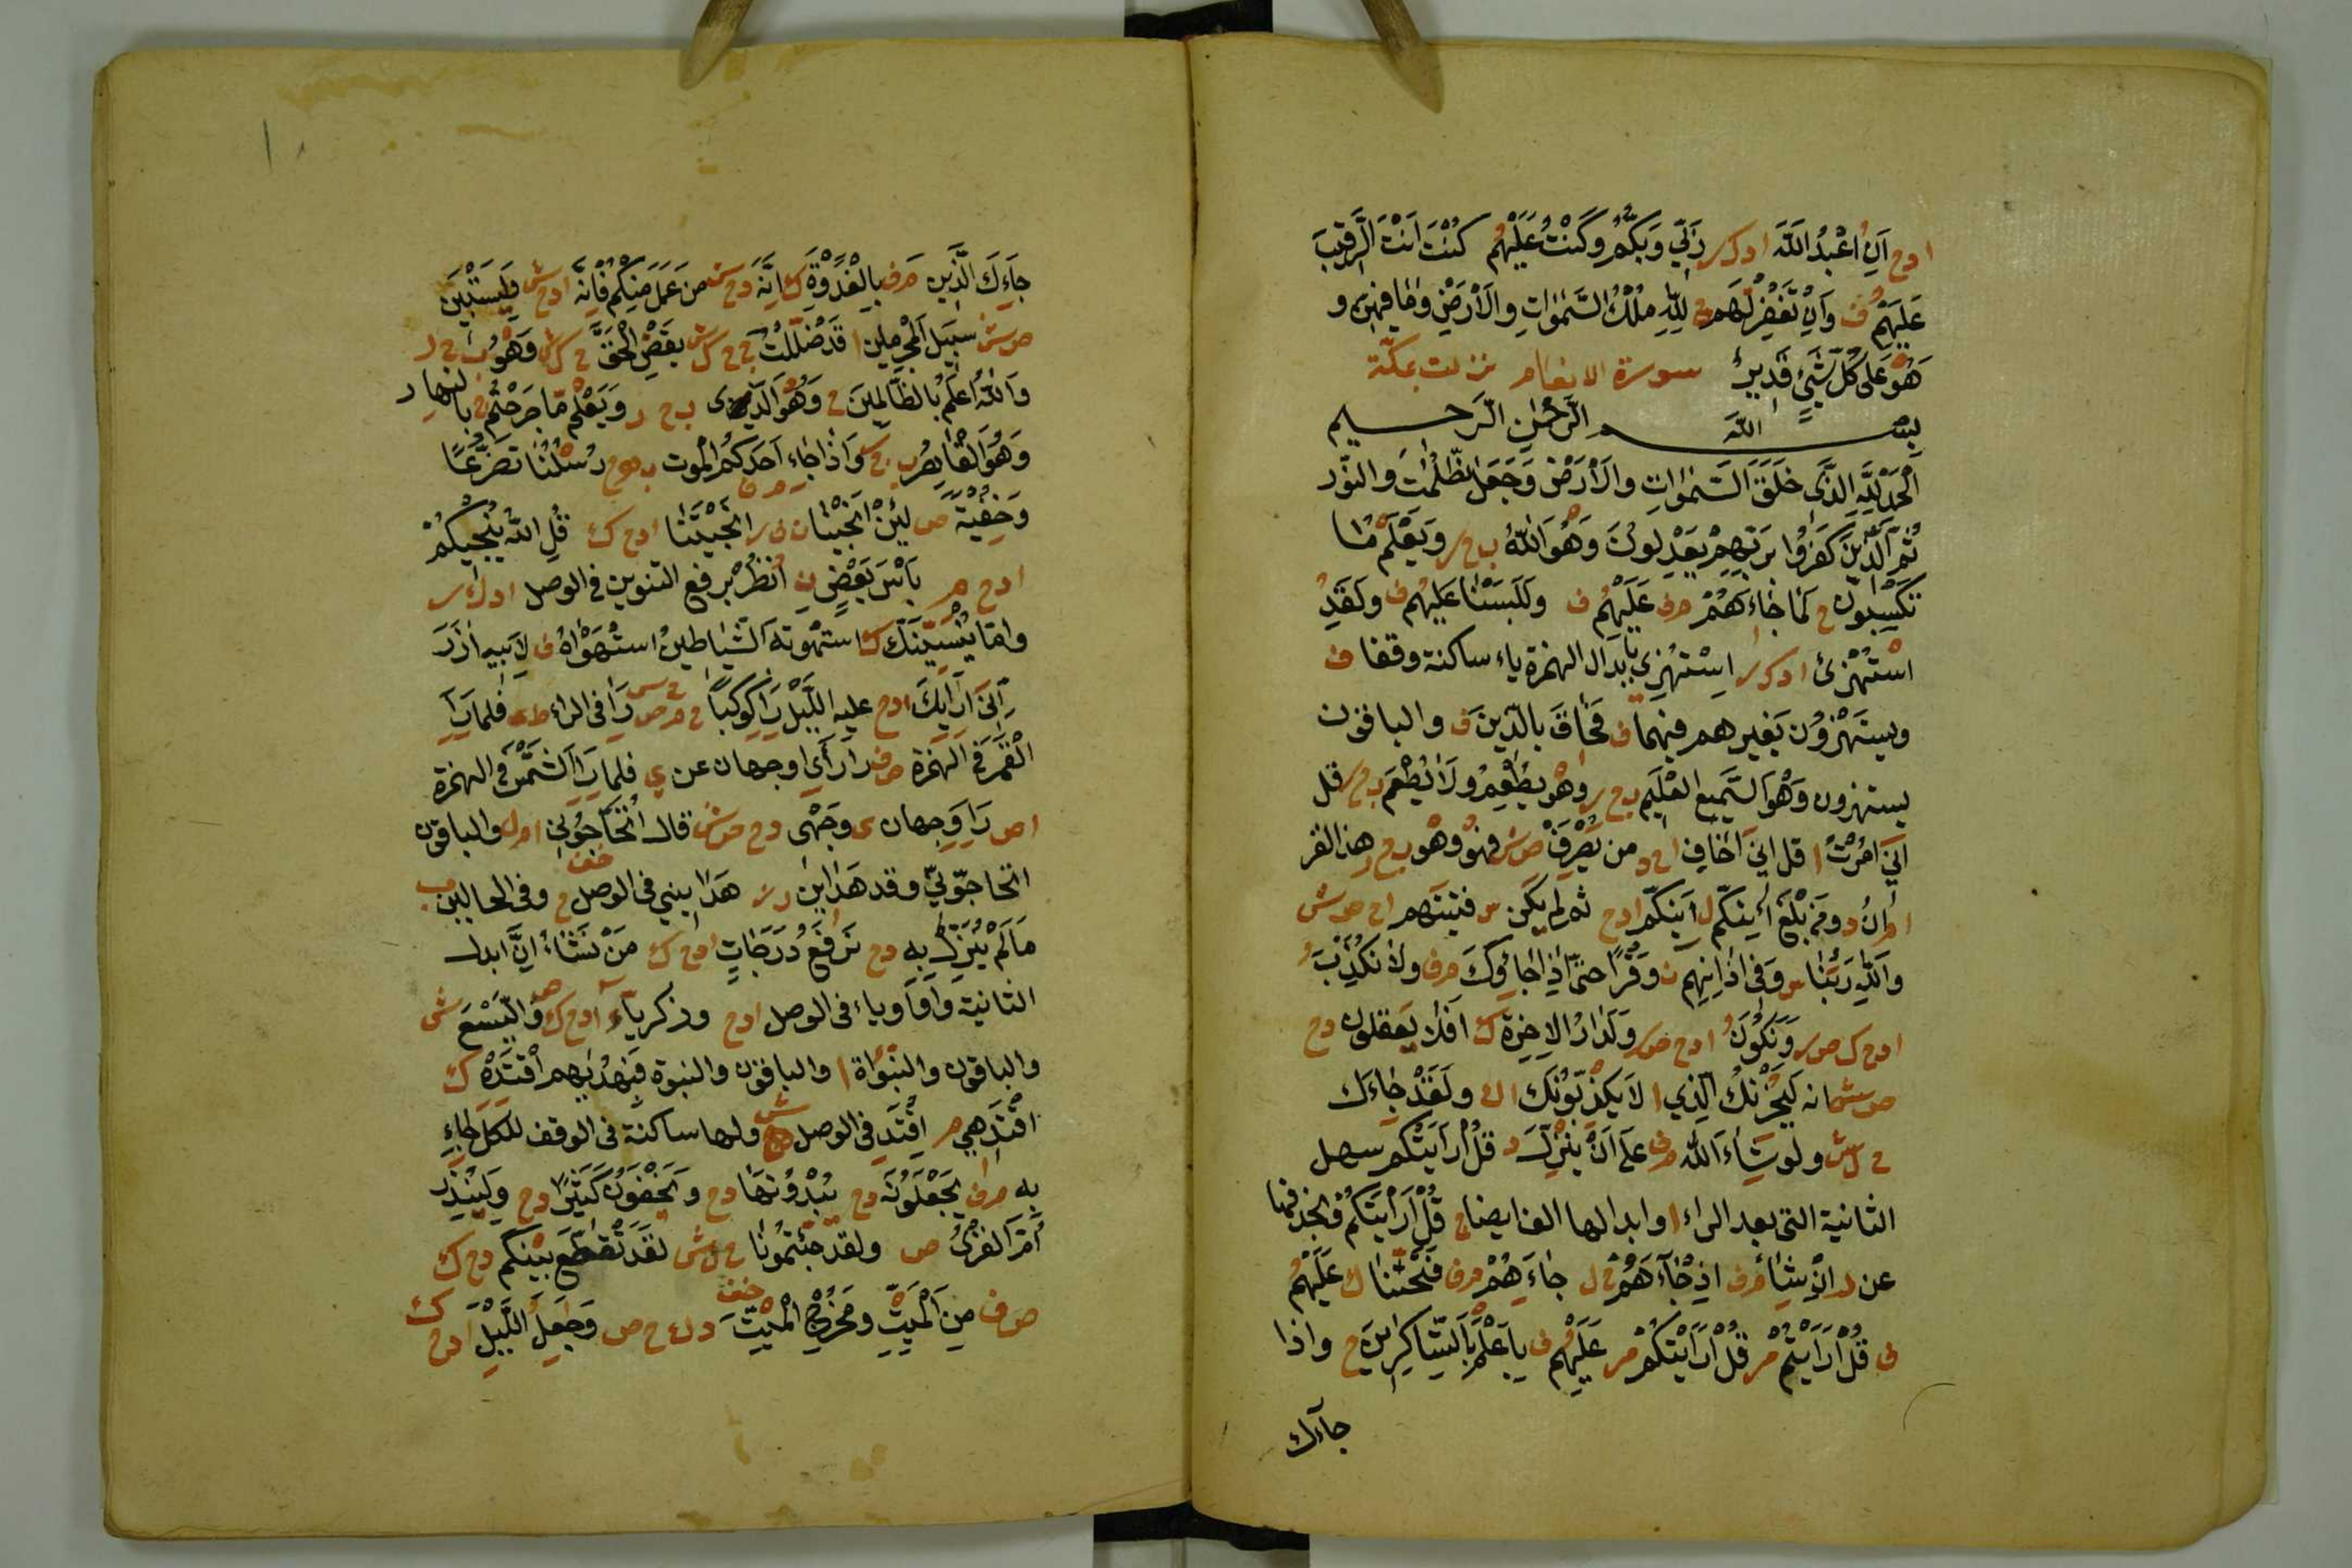 ادح اَنُ اعْبُدُ اللّٰهَ ادكر رَبِّي وَرَبَّكُمْ وَكُنْتُ عَلَيْهُم كُنْتَ اَنْتَ الرَّقِيبَ
عَلَيْهُم ف وَاِنْ تَغْفِرْ لَهُم لِلّٰهِ مُلْكُ السَّمٰوَاتِ وَالْاَرْضِ وَمَا فِيهِنَّ و
هُوَ عَلٰى كُلِّ شَىْءٍ قَدِيرٌ سورة الانعام نزلت بمكّة
بِسْمِ اللّٰه الرَّحْمٰنِ الرَّحِيم
اَلْحَمْدُ لِلّٰهِ الَّذِى خَلَقَ السَّمٰوَاتِ وَالْاَرْضَ وَجَعَلَ الظُّلُمَاتِ وَالنُّور
ثُمَّ الَّذِينَ كَفَرُوا بِرَبِّهِمْ يَعْدِلُونَ وَهْوَ اللّٰهُ ب ح ر وَيَعْلَم مَّا
تَكْسِبُونَ ح لَمَّا جَاءَهُمْ مف عَلَيْهُم ف وَلَلَبَسْنَا عَلَيْهُم ف وَلَقَدُ
اسْتُهْزِئَ ادكر اِسْتُهْزِى بابدال الهمزة ياء ساكنة وقفا ف
ويستهزؤن بغيرهم فيهما ف فَحَاقَ بالّذين ف والباقون
يستهزون وَهْوَ السَّمِيع الْعَلِيم ب ح ر وَهْوَ يُطْعِمُ وَلَا يُطْعَم ب ح ر قل
اِنِّىَ اُمِرْتُ ا قل اِنِّىَ اَخَافُ احد من يَصْرِفْ ص ش فهو وهْو ب ح ر هذا القر
ان د ومن بَلَغَ أَئِنَّكُمْ ل اَيِنَّكُمْ ادح ثم لم يكن فتنتهم اح ص ش
وَاللّٰهِ رَبَّنَا وَفِى اٰذَانِهِم وَقْرًا حَتّٰى اِذَا جَاؤُكَ مف وَلَا نُكَذِّبُ
ادح ك ص ر وَنَكُونُ ادح ص ر وَلَدَارُ الْاٰخِرَةِ ك اَفَلَا يَعقلون دح
ص ش انه لَيُحْزِنُكَ الَّذِي ا لَا يُكْذِبُونَكَ ا ر وَلَقَدْ جَاءَكَ
ح ل ش ولو شَاءَ اللّٰه مف عَلٰى اَنْ يُنْزِلَ د قُلْ اَرَاَيْتَكُم سهل
الثانية التى بعد الراء ا وابدالها الفا ايضا ج قُلْ اَرَاَيْتَكُم
عن ر اِنْ شَاءَ مف اِذ جَّاءَهُمْ ح ل جَاءَهُمْ مف فَتَّحْنَا ك عَلَيْهُم
ف قُلْ اَرَاَيْتُمْ م قُلْ اَرَاَيْتَكُمْ م عَلَيْهُم ف بِاَعْلَم بِّالشَّاكِرِينَ ح واذا
جآءك
جَاءَكَ الَّذِين مف بِالْغُدْوَةِ ك اِنَّهُ دح ش مَن عَمِلَ مِنْكُمْ فَاِنَّهُ ادح ش وَلِيَسْتَبِينَ
ص ش سَبِيلَ الْمُجْرِمِين ا قَد ضَّلَلْتُ ج ح ك ش يَقْضِ الْحَقَّ ح ك ش وَهْوَ ب ح ر
وَاللّٰه اَعْلَم بِالظَّالِمِينَ ح وَهْوَ الَّذِى ب ح ر وَيَعْلَم مَّا جَرَحْتُم ح بالنهار
وَهْوَ الْقَاهِرُ ب ح ر وَاِذَا جَاءَ اَحَدَكُمُ الْمَوْت رُسْلُنَا تَضَرُّعًا
وَخِفْيَةً ص لَئِنْ اَنْجَيْنَا ن ف ر اَنْجَيْتَنَا ادح ك قُلِ اللّٰهُ يُنْجِيكُمْ
ادح م بَأْسَ بَعْضٍ اُنْظُرْ برفع التنوين فى الوصل ادك ر
وَاِمَّا يُنَسِّيَنَّكَ ك استهوته الشّياطين استهواه ف لابيه اٰزَرَ
اِنِّىَ اَرَاكَ ادح عليه الَّيْل رَاَ كَوْكَبًا ح م ص رَا فى الراء ط فلمّا رَاَ
الْقَمَرَ فى الهمزة ص ف راَى اوجهان عن ي فلمّا رَاَ الشَّمْس فى الهمزة
ا ص رَاَ وجهان ى وَجْهِى دح ص ش قال اَتُحَاجُّونِي ا م ل والباقون
اتحاجّونّي وقد هَدَاىِن ر هَدَايني فى الوصل ح وفى الحالين ب
مَا لَمْ يُنْزِلْ بِه دح نَرْفَعُ دَرَجَاتِ ادح ك مَنْ نَشَاءُ اِنَّ ابدل
الثانية واوا وياء فى الوصل ادح وزكرياء ادح ك وَالَّيْسَعَ ش
والباقون والنبوأة ا والباقون والنبوة فبهديهم اقْتَدِهِ ك
اقْتَدِهِي م اقْتَدِ فى الوصل ش ولها ساكنة فى الوقف للكل جَاءَ
بِهِ م ف يَجْعَلُونَهُ دح يُبْدُونَهَا دح وَيُخْفُونَ كَثِيرًا دح وَلِيُنْذِرَ
اُمَّ الْقُرٰى ص ولقد جِّئْتُمُونَا ح ل ش لَقَد تَّقَطَّعَ بَيْنُكُم دح ك
ص ف مِنَ الْمَيْتِ وَمُخْرِجُ الْمَيْتِ د ك ح ص وَجَاعِلُ اللَّيْلِ ادح ك